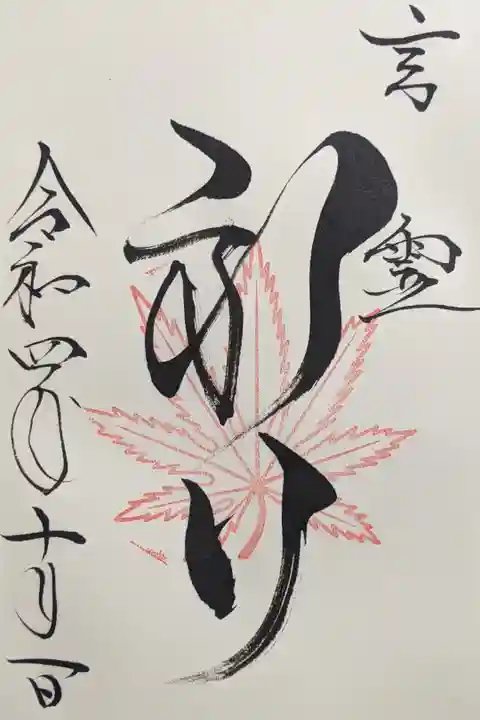 言霊
祈り
令和四年十月一日